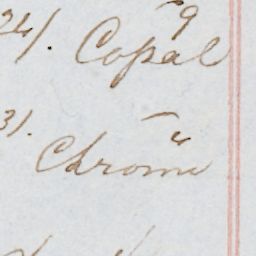 24/. Copal
31. Chrome